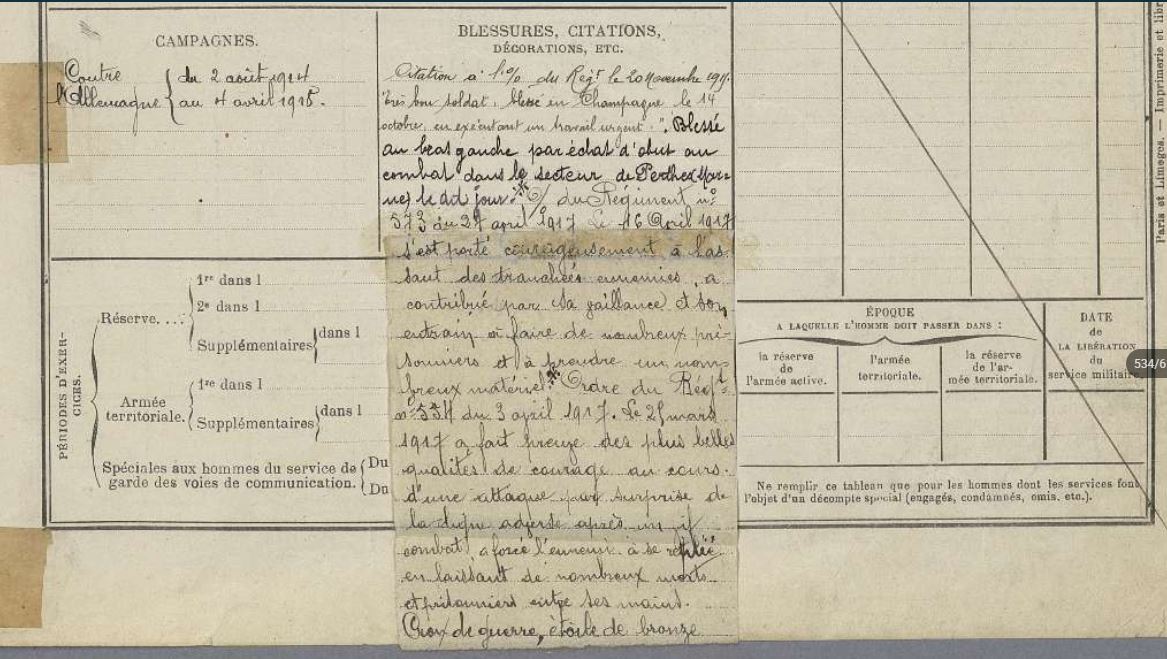 CAMPAGNES.
Contre
l'Allemagne
du 2 août 1914
au 4 avril 1918.
BLESSURES, CITATIONS,
DÉCORATIONS, ETC.
Citation à l'o/ du Régt le 20 Novembre
"Très bon soldat, blessé en Champagne le 14
octobre, en exécutant un travail urgent.". Blessé
au bras gauche par éclat d'obus au
combat dans le secteur de Perthes (Mar-
ne) le dit jour. O/ du Régiment no
573 du 27 april 1917 Le 16 April 1917
s'est porté courageusement à l'as-
saut des tranchées ennemies, a
contribué par sa vaillance et son
entrain à faire de nombreux pri-
sonniers et à prendre un nom-
breux matériel. Ordre du Régt
no 534 du 3 april 1917. Le 25 mars
1917 a fait preuve des plus belles
qualités de courage au cours
d'une attaque par surprise de
la ligne adverse après un vif
combat, a forcé l'ennemi à se
en laissant de nombreux morts
et prisonniers entre ses mains.
Croix de guerre, étoile de bronze
PÉRIODES D'EXER-
CICES.
Réserve. ...
1re dans l
2e dans l
Supplémentaires
dans l
Armée
territoriale.
1re dans l
Supplémentaires
dans l
Spéciales aux hommes du service de
garde des voies de communication.
Du
Du
ÉPOQUE
A LAQUELLE L'HOMME DOIT PASSER DANS :
la réserve
de
l'armée active.
l'armée
territoriale.
la réserve
de l'ar-
mée territoriale.
DATE
de
LA LIBÉRATION
du
service militaire.
534/6
Ne remplir ce tableau que pour les hommes dont les services font
l'objet d'un décompte spécial (engagés, condamnés, omis, etc.).
Paris et Limoges. — Imprimerie et libr